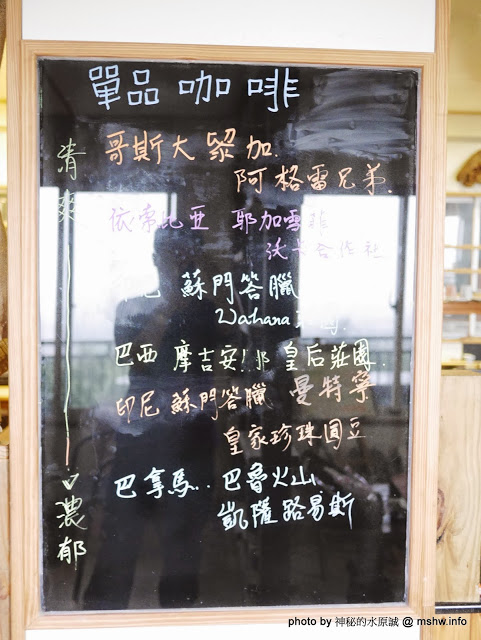 單品咖啡
清爽
哥斯大黎加.
阿格雷兄弟.
依索比亞 耶加雪菲
沃卡合作社
印尼 蘇門答臘
Wahana
巴西 摩吉安娜 皇后莊園.
印尼 蘇門答臘 曼特寧
皇家珍珠圓豆
巴拿馬.. 巴魯火山
凱薩路易斯
濃郁
photo by 神秘的水原誠 @ mshw.info